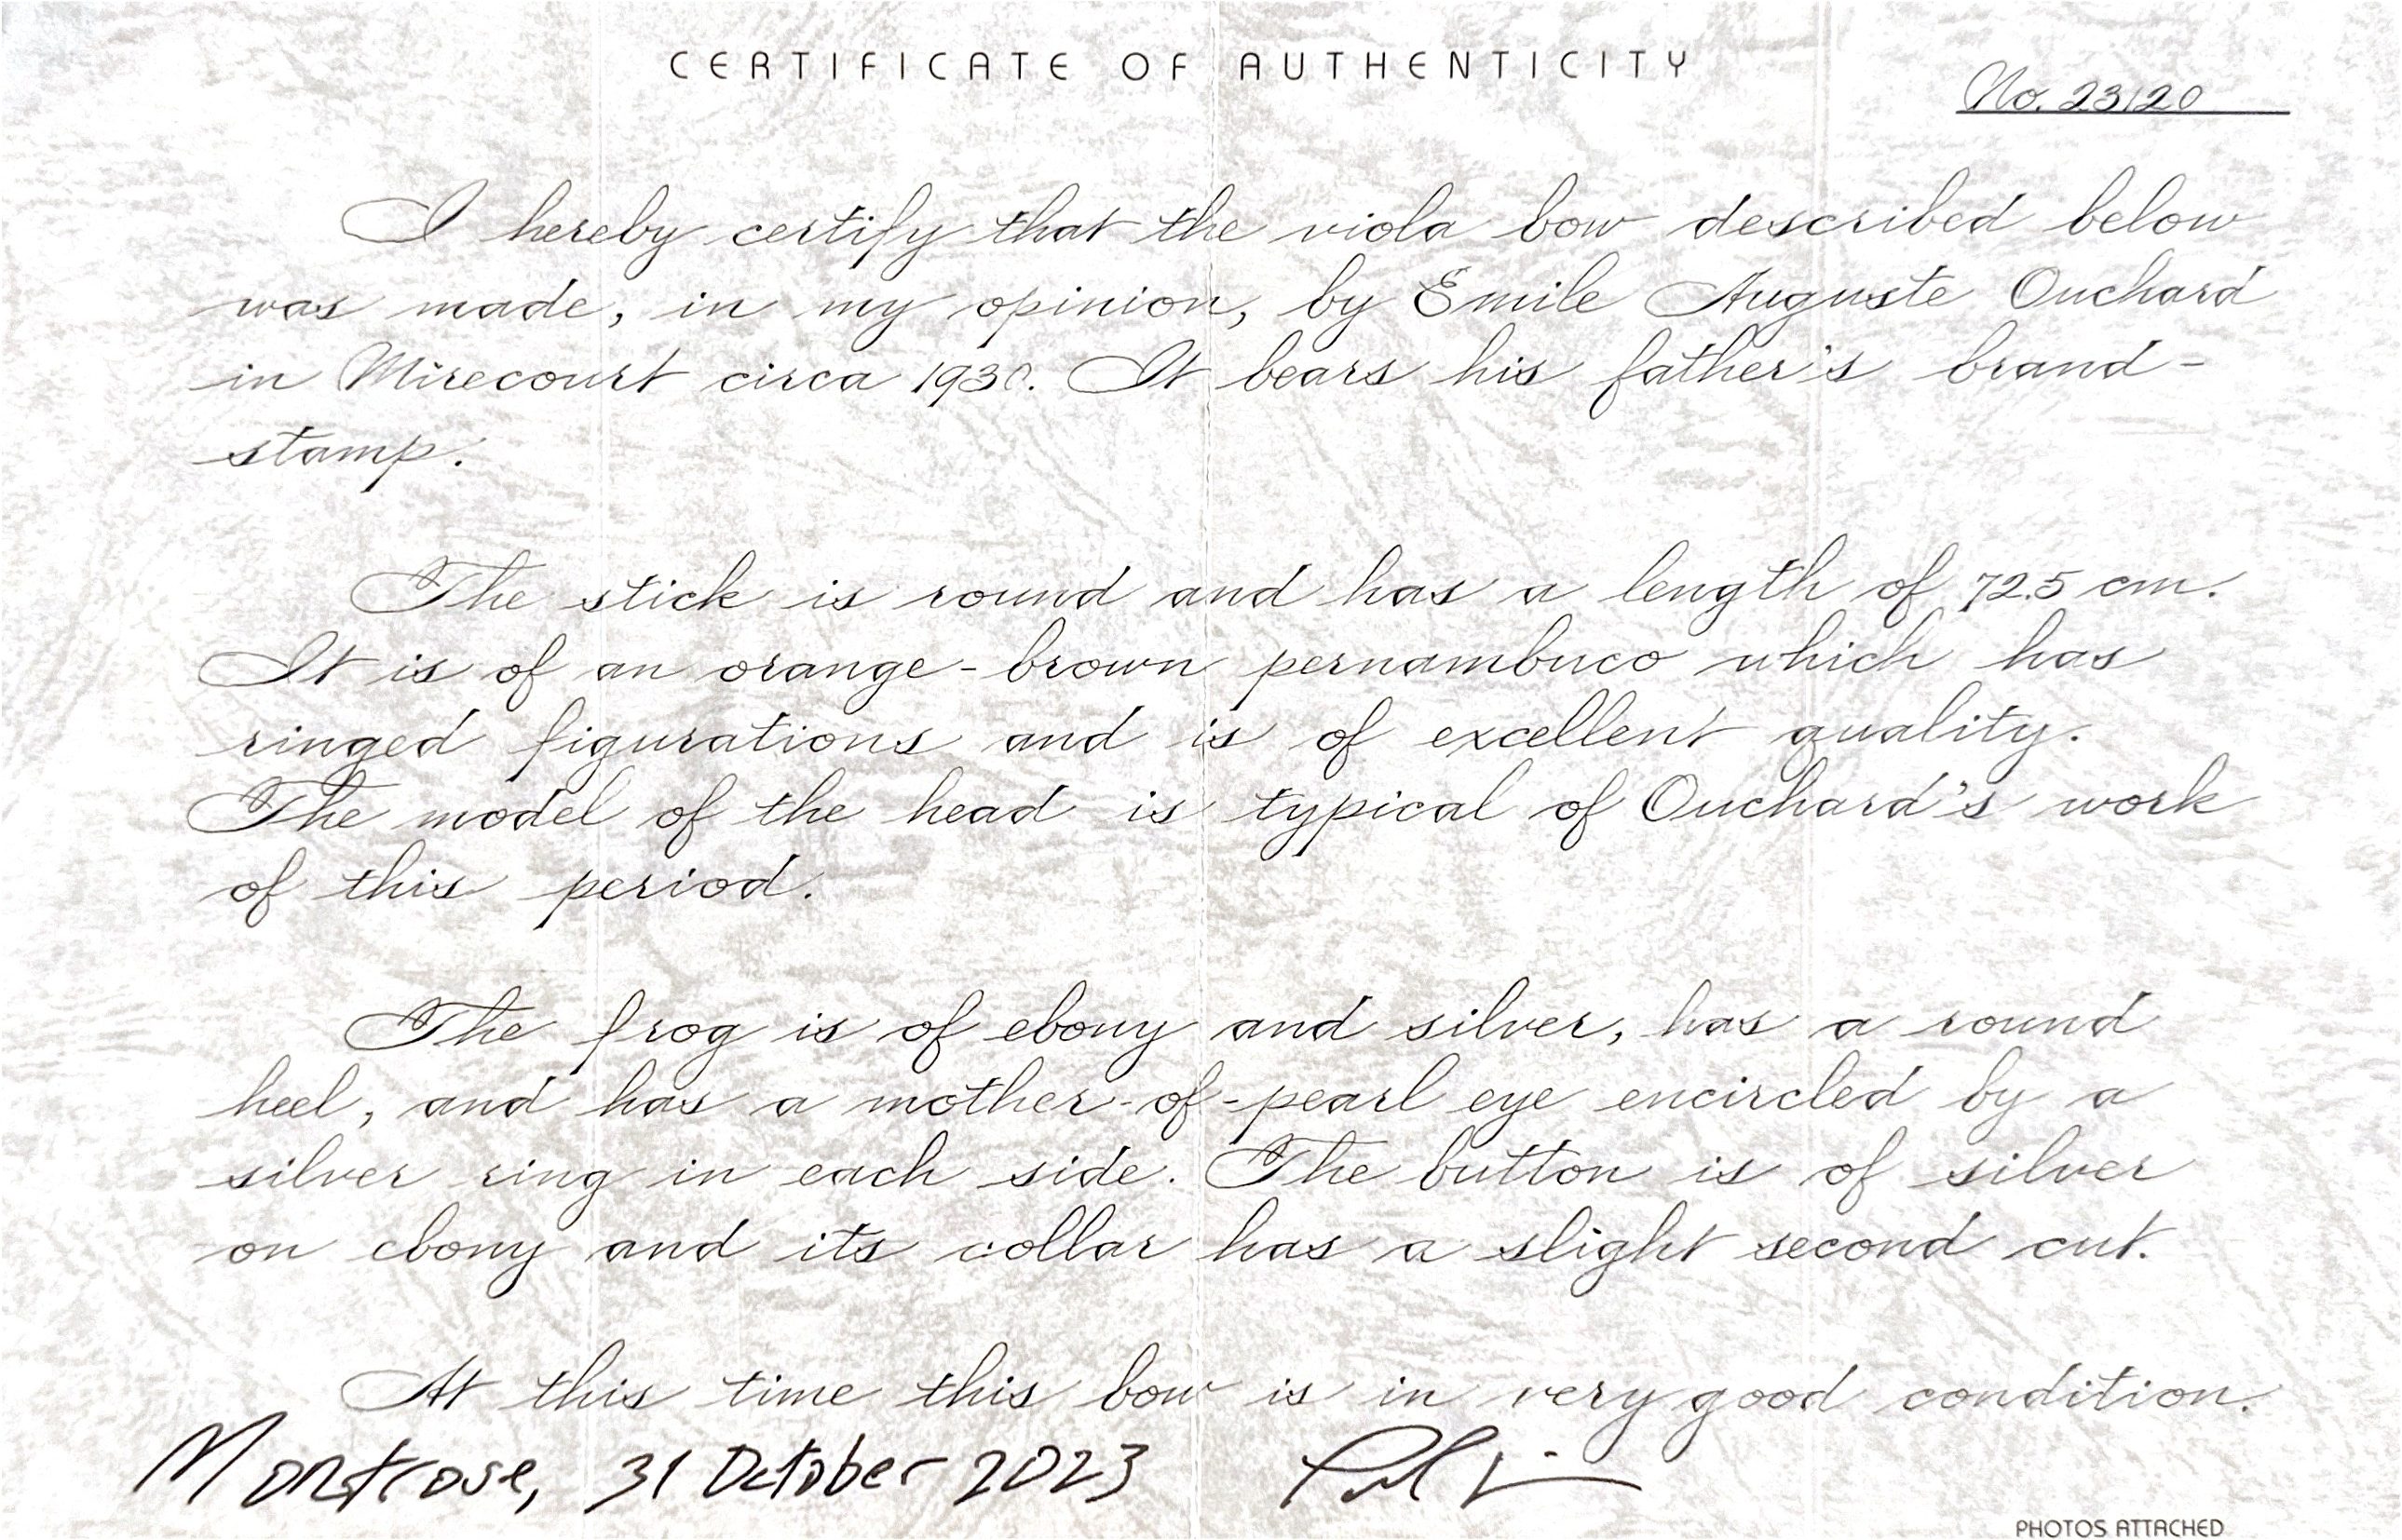 CERTIFICATE OF AUTHENTICITY
No. 23120
I hereby certify that the viola bow described below
was made, in my opinion, by Emile Auguste Ouchard
in Mirecourt circa 1930. It bears his father's brand-
stamp.
The stick is round and has a length of 72.5 cm.
It is of an orange-brown pernambuco which has
ringed figurations and is of excellent quality.
The model of the head is typical of Ouchard's work
of this period.
The frog is of ebony and silver, has a round
heel, and has a mother-of-pearl eye encircled by a
silver ring in each side. The button is of silver
on ebony and its collar has a slight second cut.
At this time this bow is in very good condition.
Montrose, 31 October 2023
PHOTOS ATTACHED